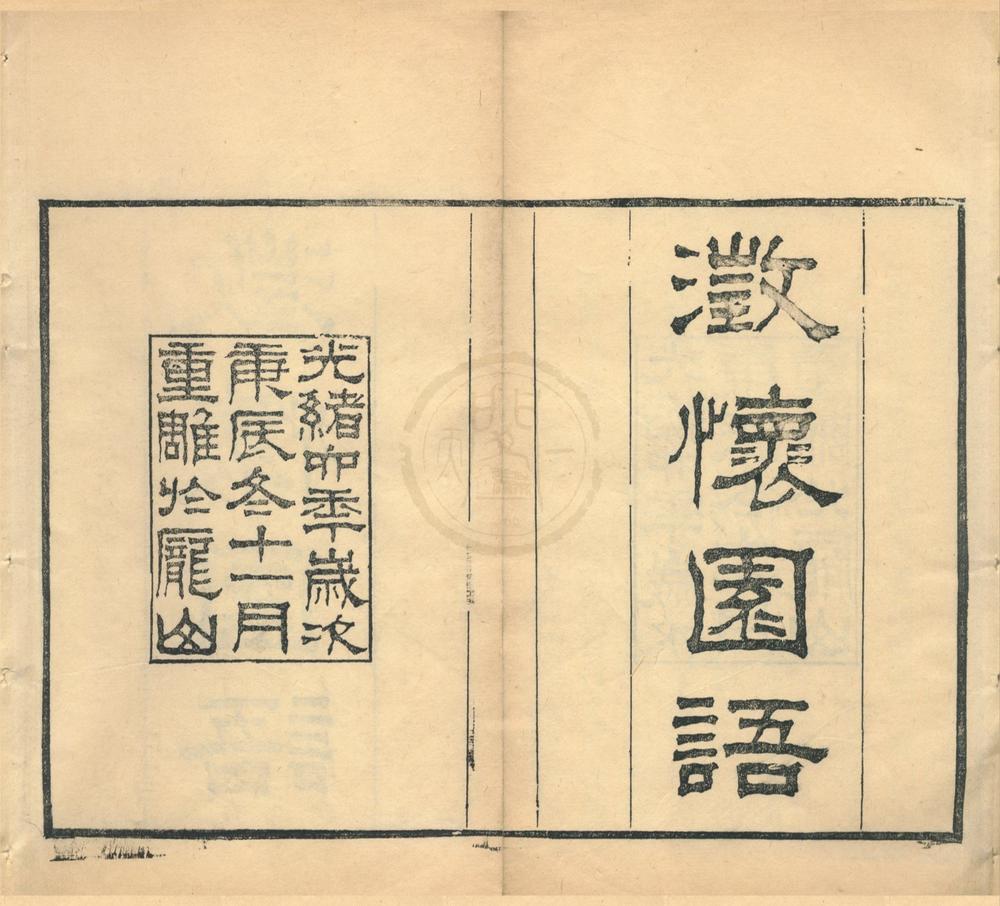 澂懷園語
光緒六秊歲次
庚辰冬十一月
重雕於龎山